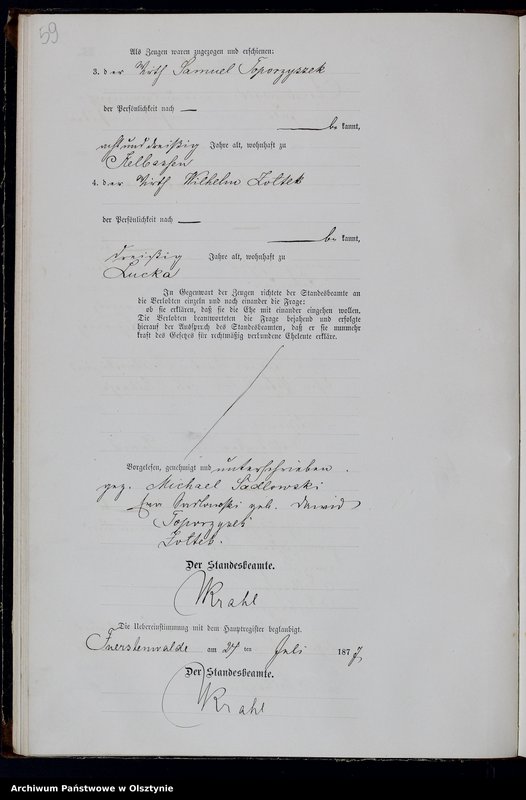 59
Als Zeugen waren zugezogen und erschienen:
3. der Wirth Samuel Toporzyszek
der Persönlichkeit nach
be kannt,
achtunddreißig Jahre alt, wohnhaft zu
Kelbassen
4. der Wirth Wilhelm Zoltek
der Persönlichkeit nach
be kannt,
dreißig Jahre alt, wohnhaft zu
Lucka
In Gegenwart der Zeugen richtete der Standesbeamte an
die Verlobten einzeln und nach einander die Frage:
ob sie erklären, daß sie die Ehe mit einander eingehen wollen.
Die Verlobten beantworteten die Frage bejahend und erfolgte
hierauf der Ausspruch des Standesbeamten, daß er sie nunmehr
kraft des Gesetzes für rechtmäßig verbundene Eheleute erkläre.
Vorgelesen, genehmigt und unterschrieben.
gez. Michael Sadlowski
Eva Sadlowski geb. Dawid
Zoltek.
Der Standesbeamte.
Krahl
Die Uebereinstimmung mit dem Hauptregister beglaubigt.
Fuerstenwalde am 24 ten Juli 1877
Der Standesbeamte.
Krahl
Archiwum Państwowe w Olsztynie